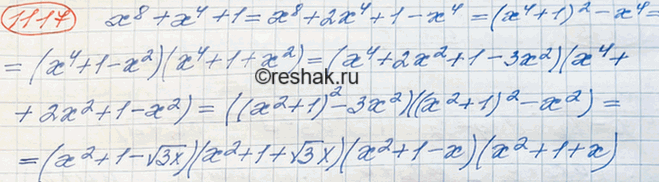 1117 x⁸ + x⁴ + 1 = x⁸ + 2x⁴ + 1 - x⁴ = (x⁴ + 1)² - x⁴ =
= (x⁴ + 1 - x²)(x⁴ + 1 + x²) = (x⁴ + 2x² + 1 - 3x²)(x⁴ +
©reshak.ru
+ 2x² + 1 - x²) = ((x² + 1)² - 3x²)((x² + 1)² - x²) =
= (x² + 1 - √3x)(x² + 1 + √3x)(x² + 1 - x)(x² + 1 + x)